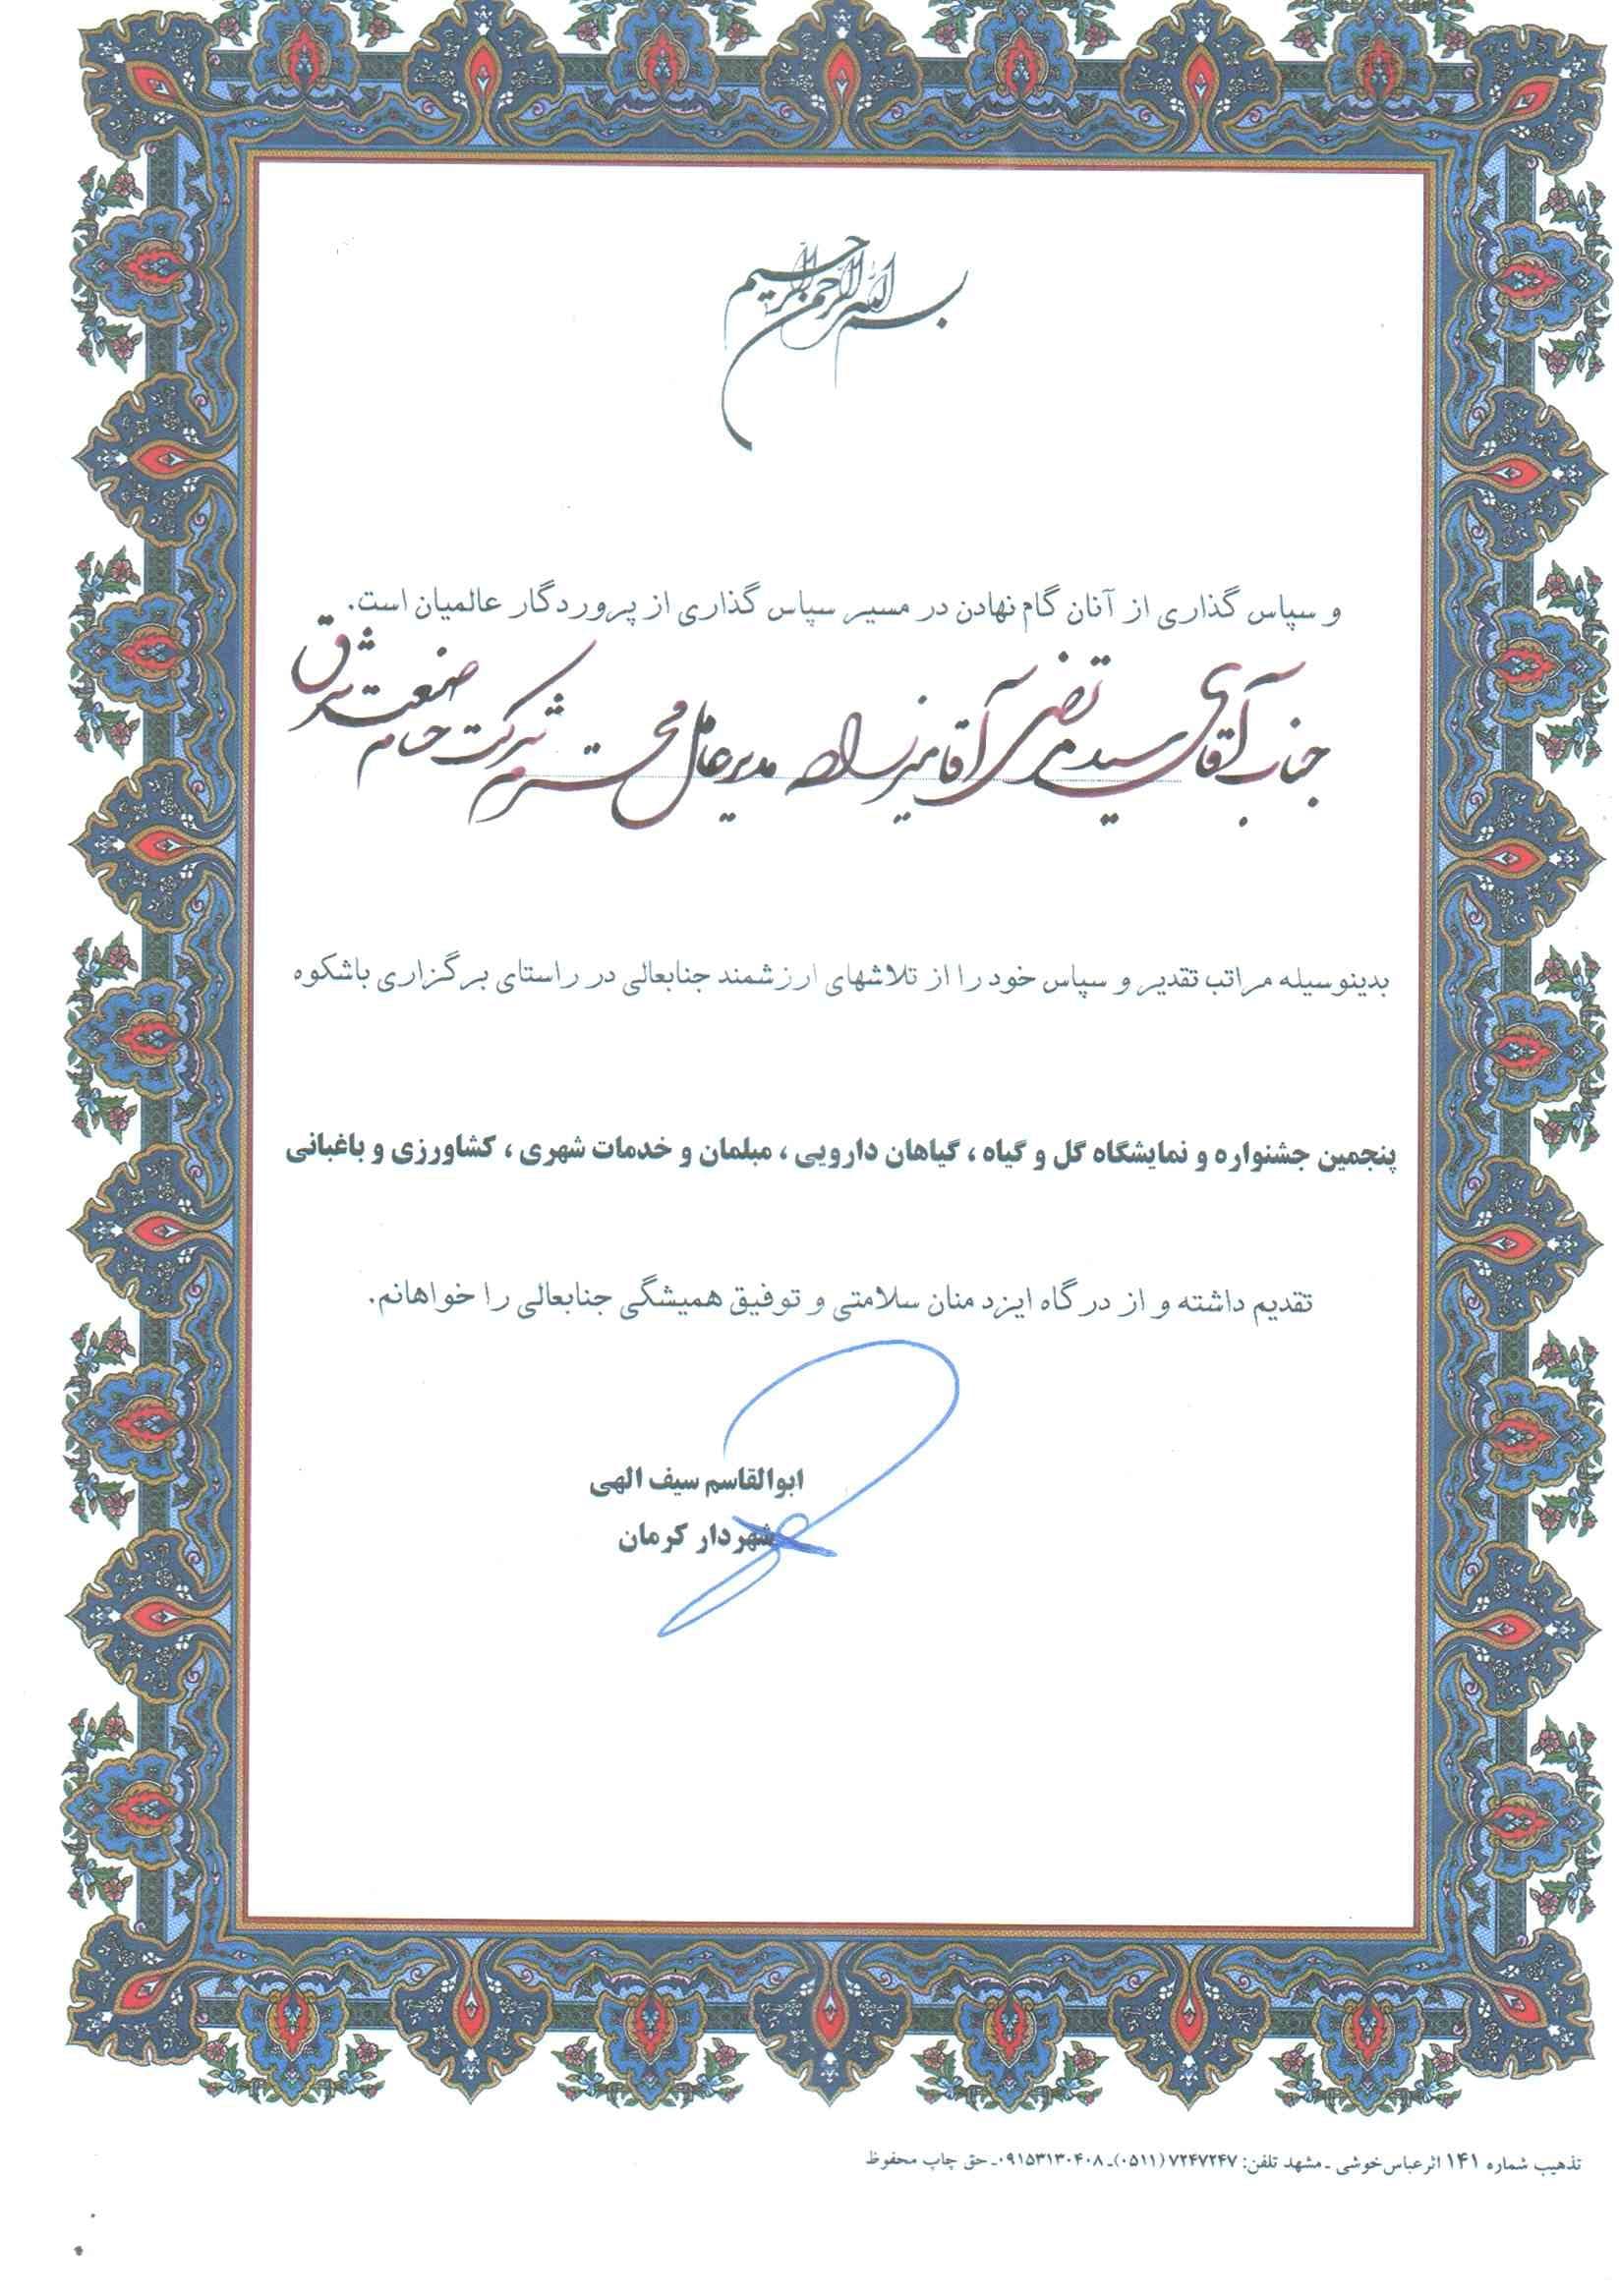 بسم الله الرحمن الرحیم
و سپاس گذاری از آنان گام نهادن در مسیر سپاس گذاری از پروردگار عالمیان است.
جناب آقای سید مرتضی آقامیرزاده مدیرعامل محترم شرکت حسام صنعت شرق
بدینوسیله مراتب تقدیر و سپاس خود را از تلاشهای ارزشمند جنابعالی در راستای برگزاری باشکوه
پنجمین جشنواره و نمایشگاه گل و گیاه ، گیاهان دارویی ، مبلمان و خدمات شهری ، کشاورزی و باغبانی
تقدیم داشته و از درگاه ایزد منان سلامتی و توفیق همیشگی جنابعالی را خواهانم.
ابوالقاسم سیف الهی
شهردار کرمان
تذهیب شماره ۱۴۱ اثر عباس خوشی ـ مشهد تلفن: ۷۲۴۷۲۴۷ (۰۵۱۱)ـ ۰۹۱۵۳۱۳۰۴۰۸ـ حق چاپ محفوظ